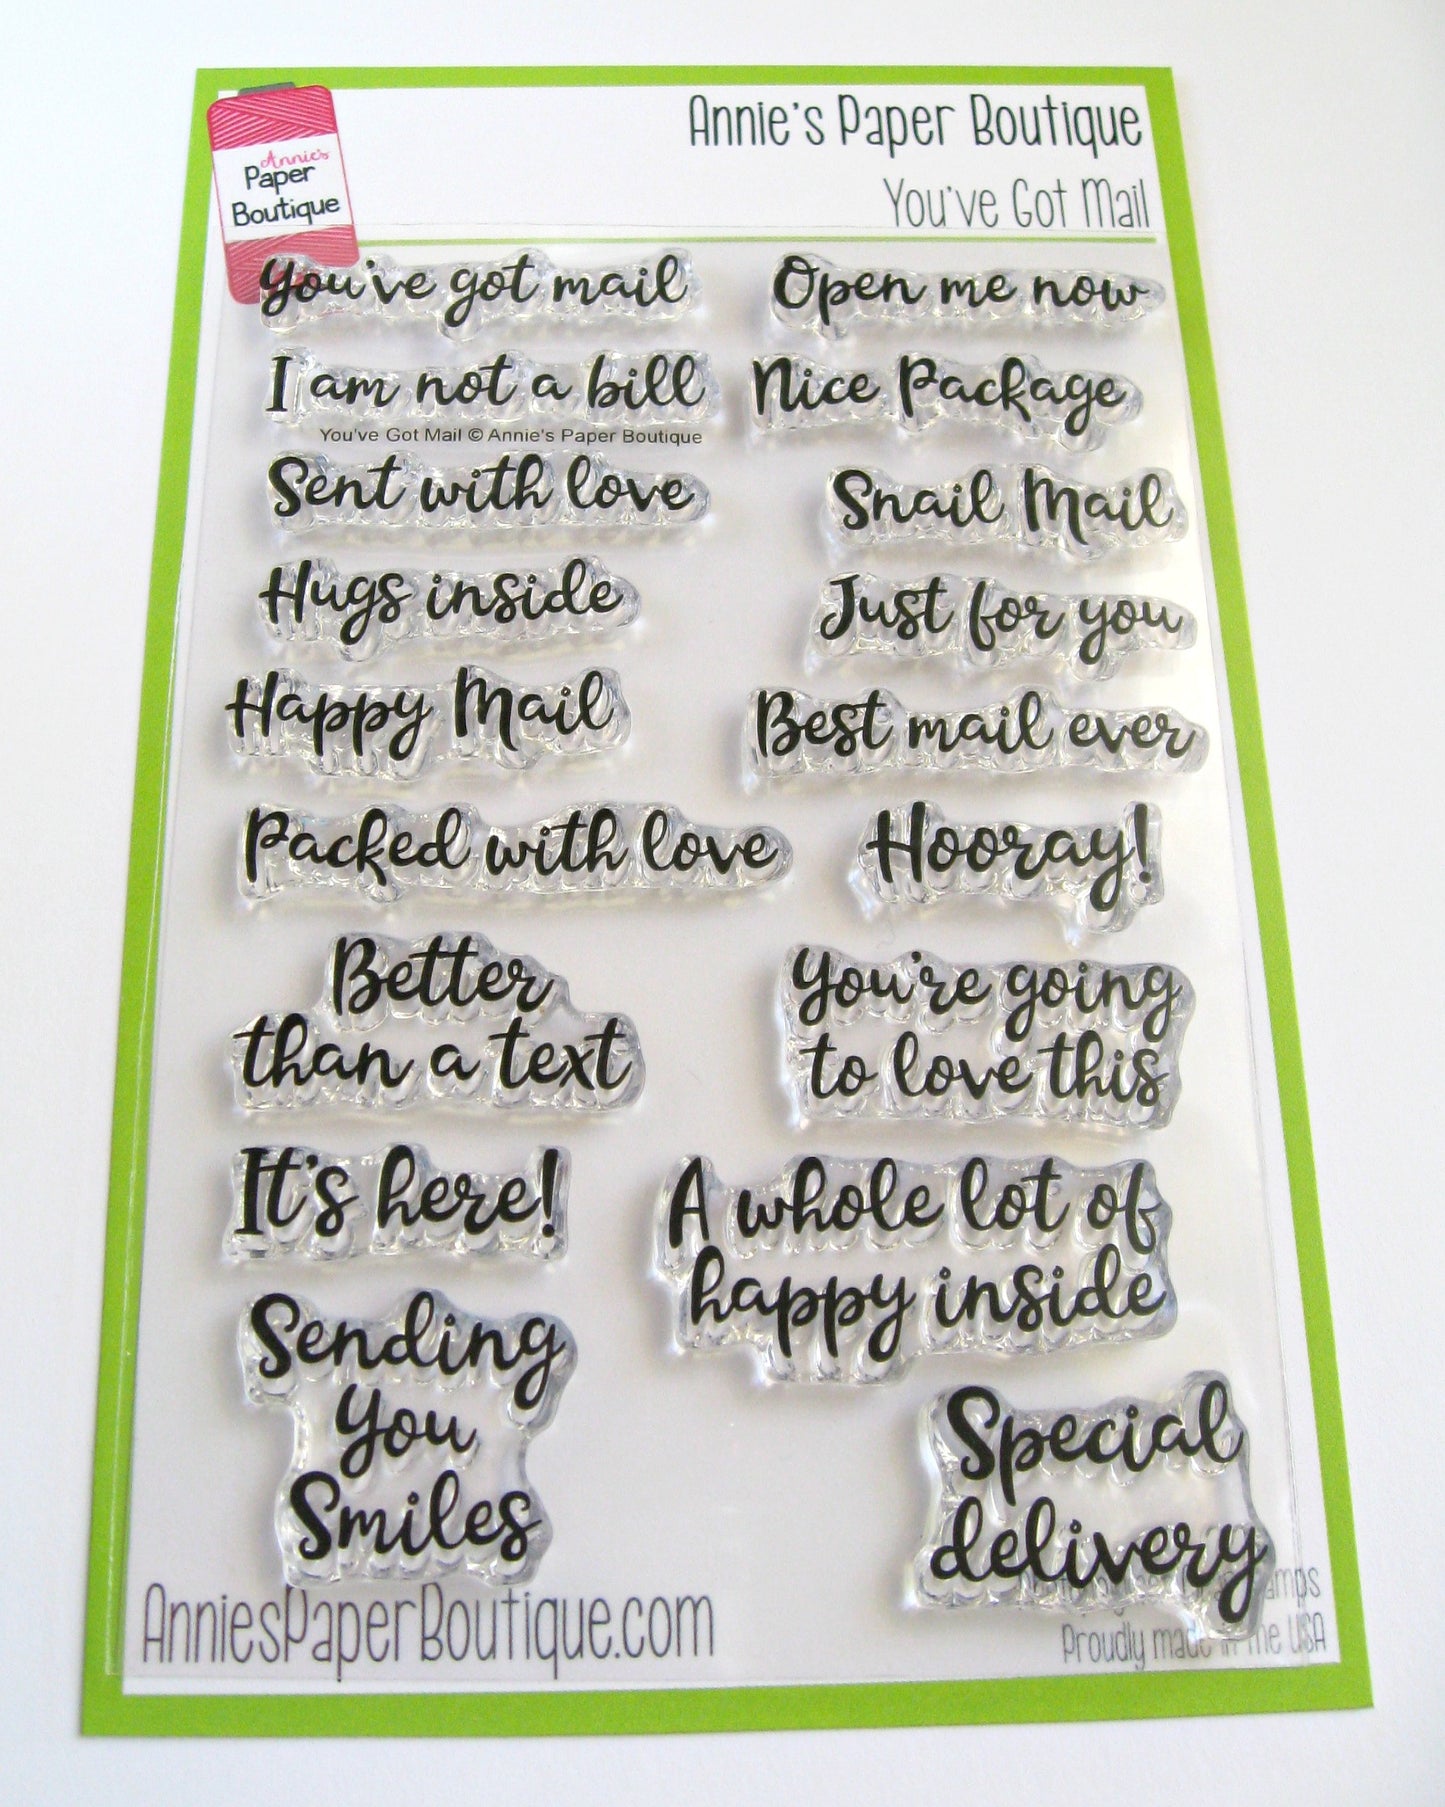 Annie's
Paper
Boutique
Annie's Paper Boutique
You've Got Mail
You've got mail
Open me now
I am not a bill
Nice Package
You've Got Mail © Annie's Paper Boutique
Sent with love
Snail Mail
Hugs inside
Just for you
Happy Mail
Best mail ever
Packed with love
Hooray!
Better
than a text
You're going
to love this
It's here!
A whole lot of
happy inside
Sending
You
Smiles
Special
delivery
AnniesPaperBoutique.com
Proudly made in the USA